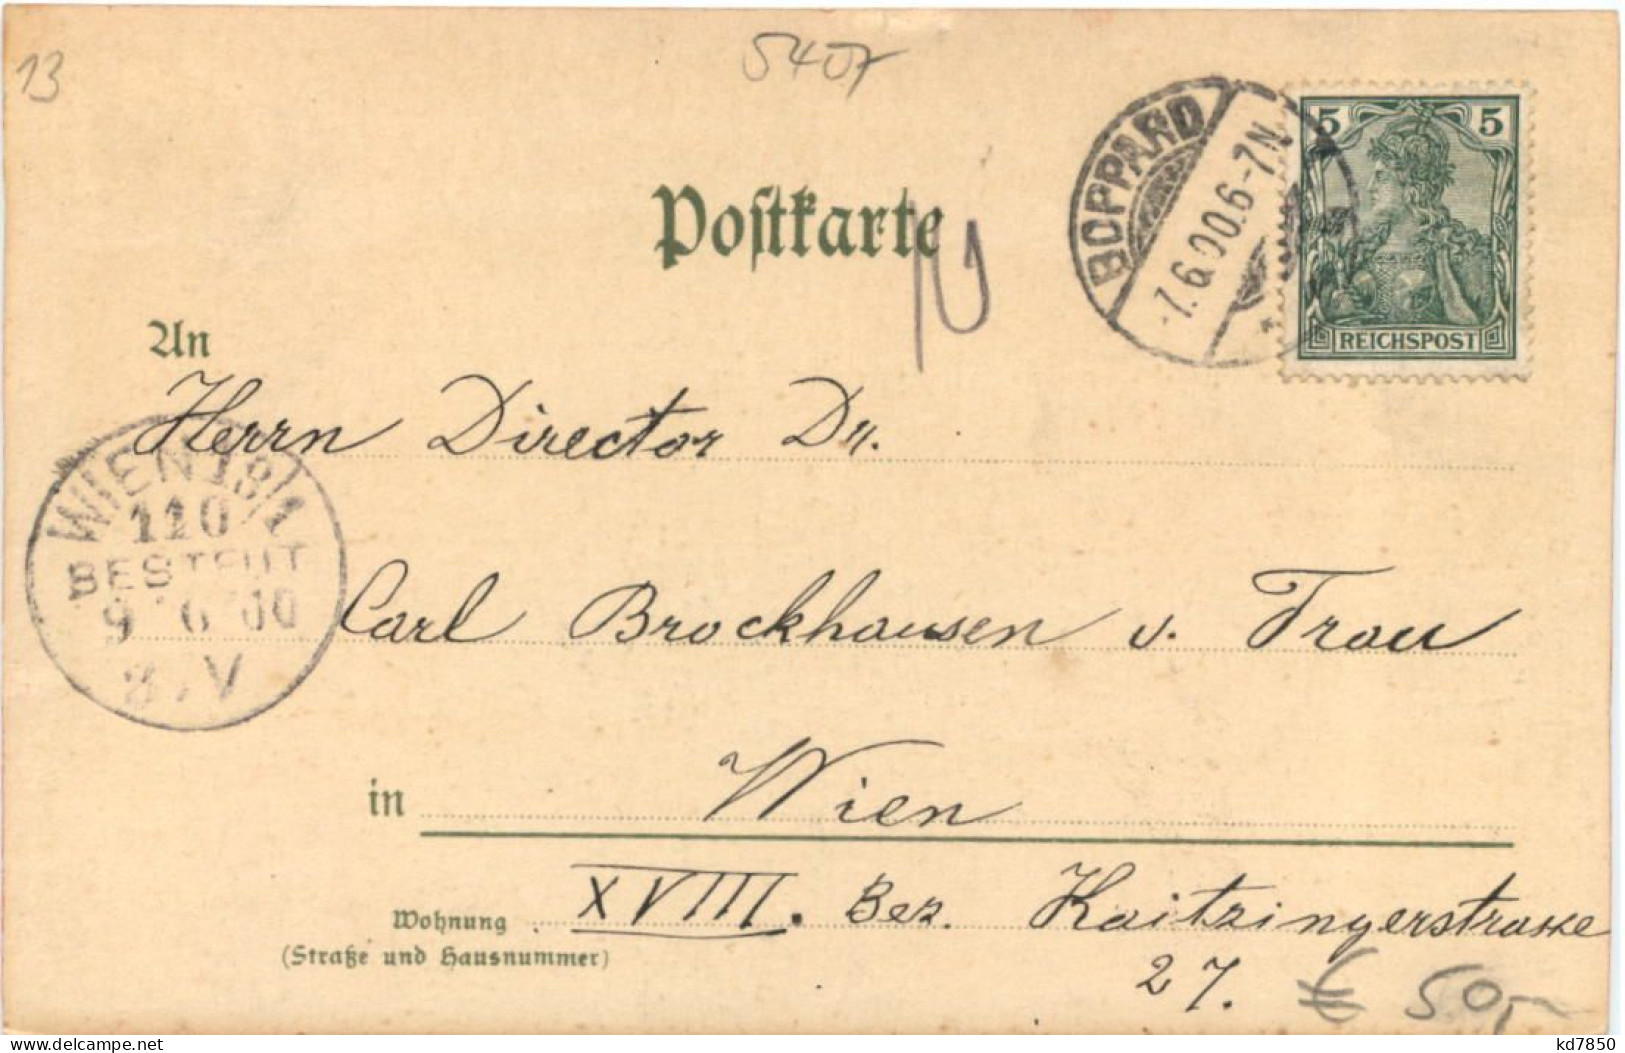 13
5407
BOPPARD
7.6.00.6-7N.
5 5
REICHSPOST
Postkarte
An
Herrn Director Dr.
WIEN 18/1
110
BESTELLT
9 6 00
8 V
Carl Brockhausen u. Frau
in Wien
Wohnung XVIII. Bez. Kaitzingerstrasse
(Straße und Hausnummer)
27.
€ 50,-
kd7850